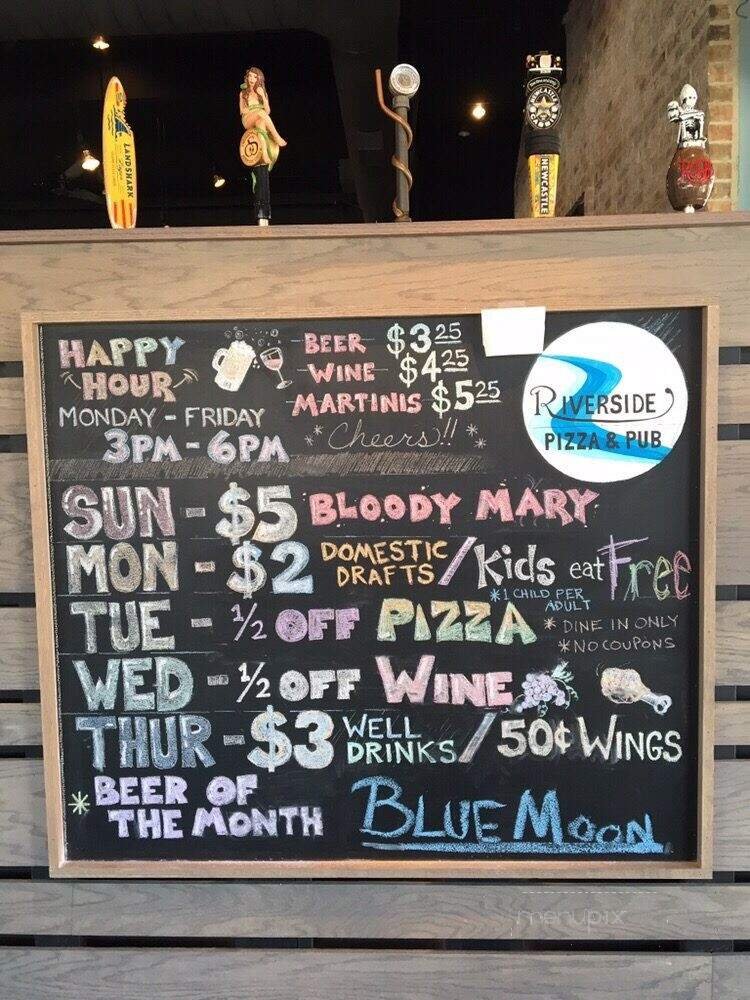 LANDSHARK
NEWCASTLE
NEWCASTLE
HAPPY
HOUR
MONDAY - FRIDAY
3PM - 6PM
BEER $3.25
WINE $4.25
MARTINIS $5.25
* Cheers!! *
RIVERSIDE
PIZZA & PUB
SUN - $5 BLOODY MARY
MON - $2 DOMESTIC DRAFTS / Kids eat Free
*1 CHILD PER
ADULT
TUE - 1/2 OFF PIZZA
* DINE IN ONLY
* NO COUPONS
WED - 1/2 OFF WINE
THUR - $3 WELL DRINKS / 50¢ WINGS
* BEER OF
THE MONTH
BLUE MOON
menupix